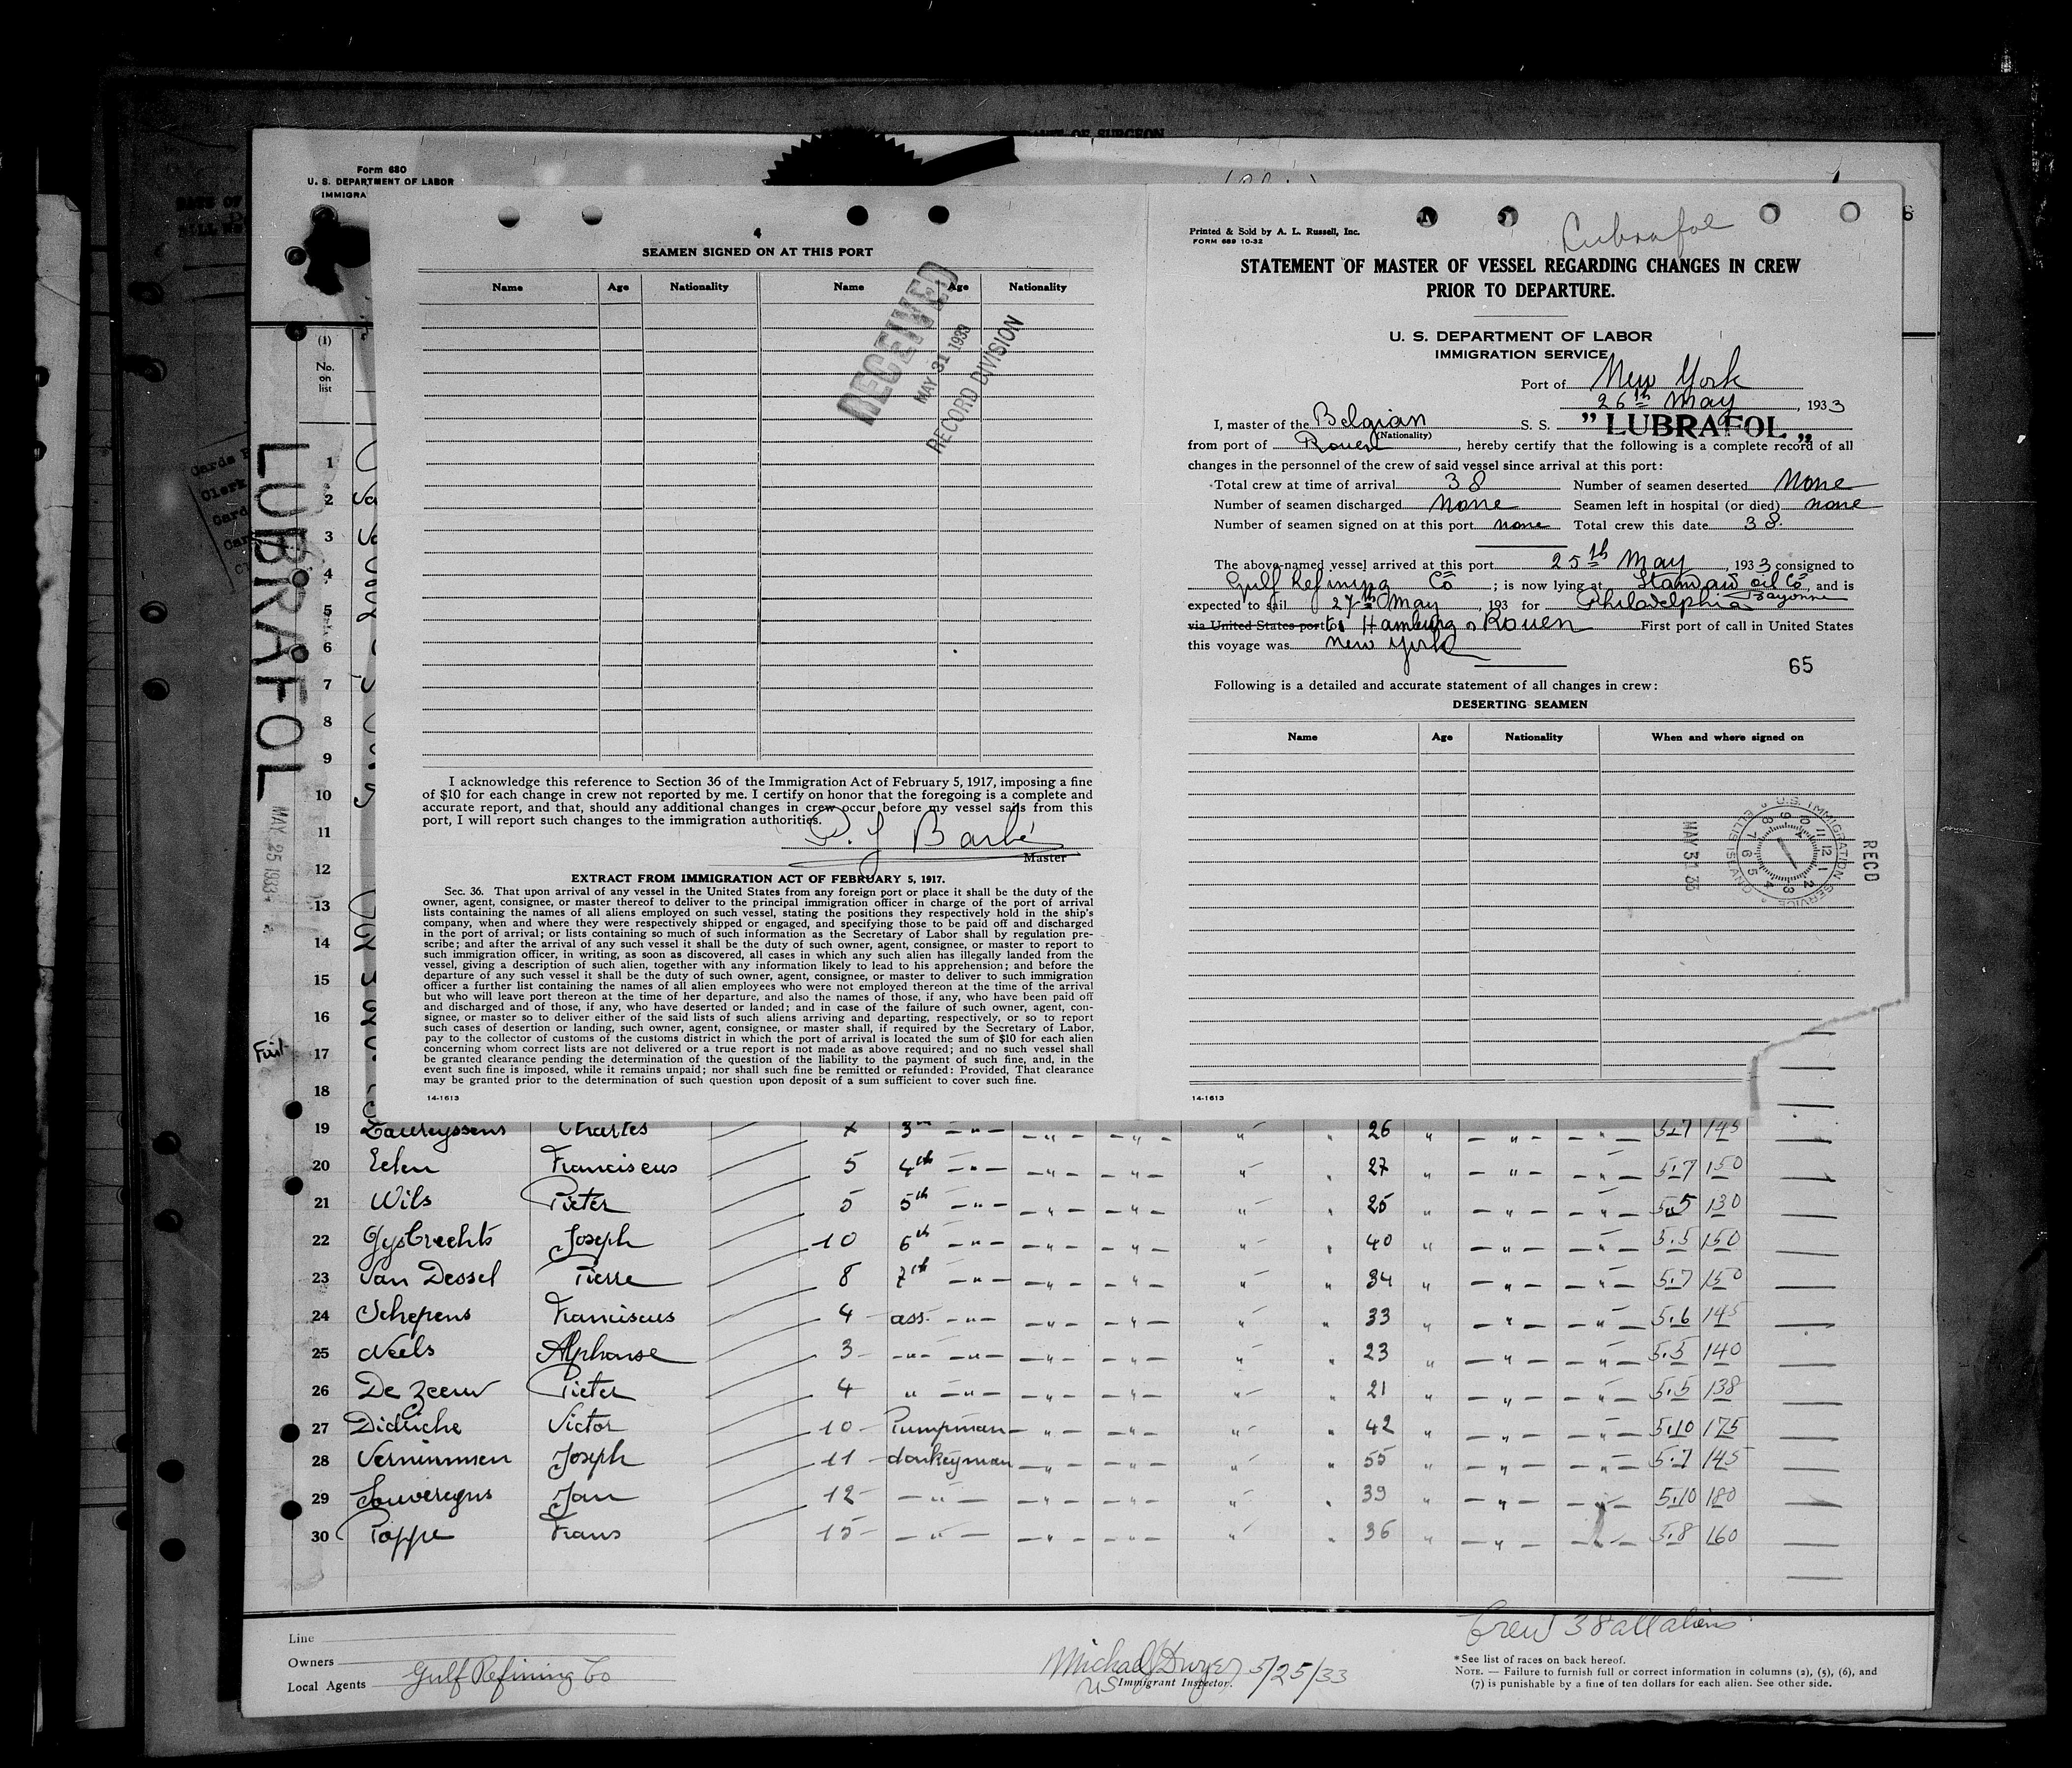 Form 680
U. S. DEPARTMENT OF LABOR
IMMIGRA
OF SURGEON
(1)
No.
on
list
LUBRAFOL
MAY 25 1933
4
SEAMEN SIGNED ON AT THIS PORT
Name Age Nationality Name Age Nationality
RECEIVED
MAY 31 1933
RECORD DIVISION
I acknowledge this reference to Section 36 of the Immigration Act of February 5, 1917, imposing a fine
of $10 for each change in crew not reported by me. I certify on honor that the foregoing is a complete and
accurate report, and that, should any additional changes in crew occur before my vessel sails from this
port, I will report such changes to the immigration authorities.
P. J Barbé
Master
EXTRACT FROM IMMIGRATION ACT OF FEBRUARY 5, 1917.
Sec. 36. That upon arrival of any vessel in the United States from any foreign port or place it shall be the duty of the
owner, agent, consignee, or master thereof to deliver to the principal immigration officer in charge of the port of arrival
lists containing the names of all aliens employed on such vessel, stating the positions they respectively hold in the ship's
company, when and where they were respectively shipped or engaged, and specifying those to be paid off and discharged
in the port of arrival; or lists containing so much of such information as the Secretary of Labor shall by regulation pre-
scribe; and after the arrival of any such vessel it shall be the duty of such owner, agent, consignee, or master to report to
such immigration officer, in writing, as soon as discovered, all cases in which any such alien has illegally landed from the
vessel, giving a description of such alien, together with any information likely to lead to his apprehension; and before the
departure of any such vessel it shall be the duty of such owner, agent, consignee, or master to deliver to such immigration
officer a further list containing the names of all alien employees who were not employed thereon at the time of the arrival
but who will leave port thereon at the time of her departure, and also the names of those, if any, who have been paid off
and discharged and of those, if any, who have deserted or landed; and in case of the failure of such owner, agent, con-
signee, or master so to deliver either of the said lists of such aliens arriving and departing, respectively, or so to report
such cases of desertion or landing, such owner, agent, consignee, or master shall, if required by the Secretary of Labor,
pay to the collector of customs of the customs district in which the port of arrival is located the sum of $10 for each alien
concerning whom correct lists are not delivered or a true report is not made as above required; and no such vessel shall
be granted clearance pending the determination of the question of the liability to the payment of such fine, and, in the
event such fine is imposed, while it remains unpaid; nor shall such fine be remitted or refunded: Provided, That clearance
may be granted prior to the determination of such question upon deposit of a sum sufficient to cover such fine.
14-1613
Lubrafol
Printed & Sold by A. L. Russell, Inc.
FORM 689 10-32
STATEMENT OF MASTER OF VESSEL REGARDING CHANGES IN CREW
PRIOR TO DEPARTURE.
U. S. DEPARTMENT OF LABOR
IMMIGRATION SERVICE
Port of New York
26th May, 1933
I, master of the Belgian S. S. "LUBRAFOL"
(Nationality)
from port of Rouen, hereby certify that the following is a complete record of all
changes in the personnel of the crew of said vessel since arrival at this port:
Total crew at time of arrival 38 Number of seamen deserted None
Number of seamen discharged None Seamen left in hospital (or died) none
Number of seamen signed on at this port none Total crew this date 38.
The above-named vessel arrived at this port 25th May, 1933 consigned to
Gulf Refining Co; is now lying at Standard oil Co, and is
Bayonne
expected to sail 27th May, 193 for Philadelphia
via United States port to Hamburg & Rouen First port of call in United States
this voyage was New York
65
Following is a detailed and accurate statement of all changes in crew:
DESERTING SEAMEN
Name Age Nationality When and where signed on
U.S. IMMIGRATION SERVICE ELLIS ISLAND
RECD
MAY 31 33
14-1613
1
2
3
4
5
6
7
8
9
10
11
12
13
14
15
16
First 17
18
19 Laureyssens Charles 3rd 26 5.7 145
20 Eelen Franciscus 5 4th 27 5.7 150
21 Wils Pieter 5 5th 25 5.5 130
22 Gysbrechts Joseph 10 6th 40 5.5 150
23 Van Dessel Pierre 8 7th 34 5.7 150
24 Schepens Franciscus 4 ass. 33 5.6 145
25 Neels Alphonse 3 -"- -"- 23 5.5 140
26 De Zeeuw Pieter 4 " -"- 21 5.5 138
27 Didriche Victor 10 Pumpman 42 5.10 175
28 Vernimmen Joseph 11 donkeyman 55 5.7 145
29 Souvereyns Jan 12 -"- 39 5.10 180
30 Poppe Frans 15 -"- 36 5.8 160
Crew 38 all aliens
Line
Owners
Local Agents Gulf Refining Co
Michael Dwyer 5/25/33
US Immigrant Inspector.
*See list of races on back hereof.
NOTE. — Failure to furnish full or correct information in columns (2), (5), (6), and
(7) is punishable by a fine of ten dollars for each alien. See other side.